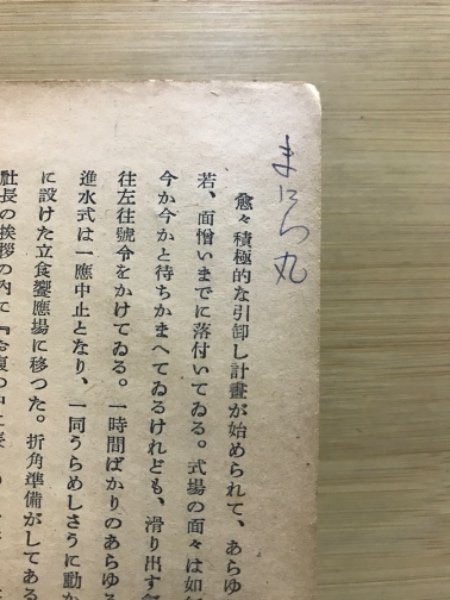 まにら丸
愈々積極的な引卸し計畫が始められて、あらゆ
若、面憎いまでに落付いてゐる。式場の面々は如何
今か今かと待ちかまへてゐるけれども、滑り出す氣
往左往號令をかけてゐる。一時間ばかりのあらゆる
進水式は一應中止となり、一同うらめしさうに動か
に設けた立食饗應場に移つた。折角準備がしてある
社長の挨拶の内に『